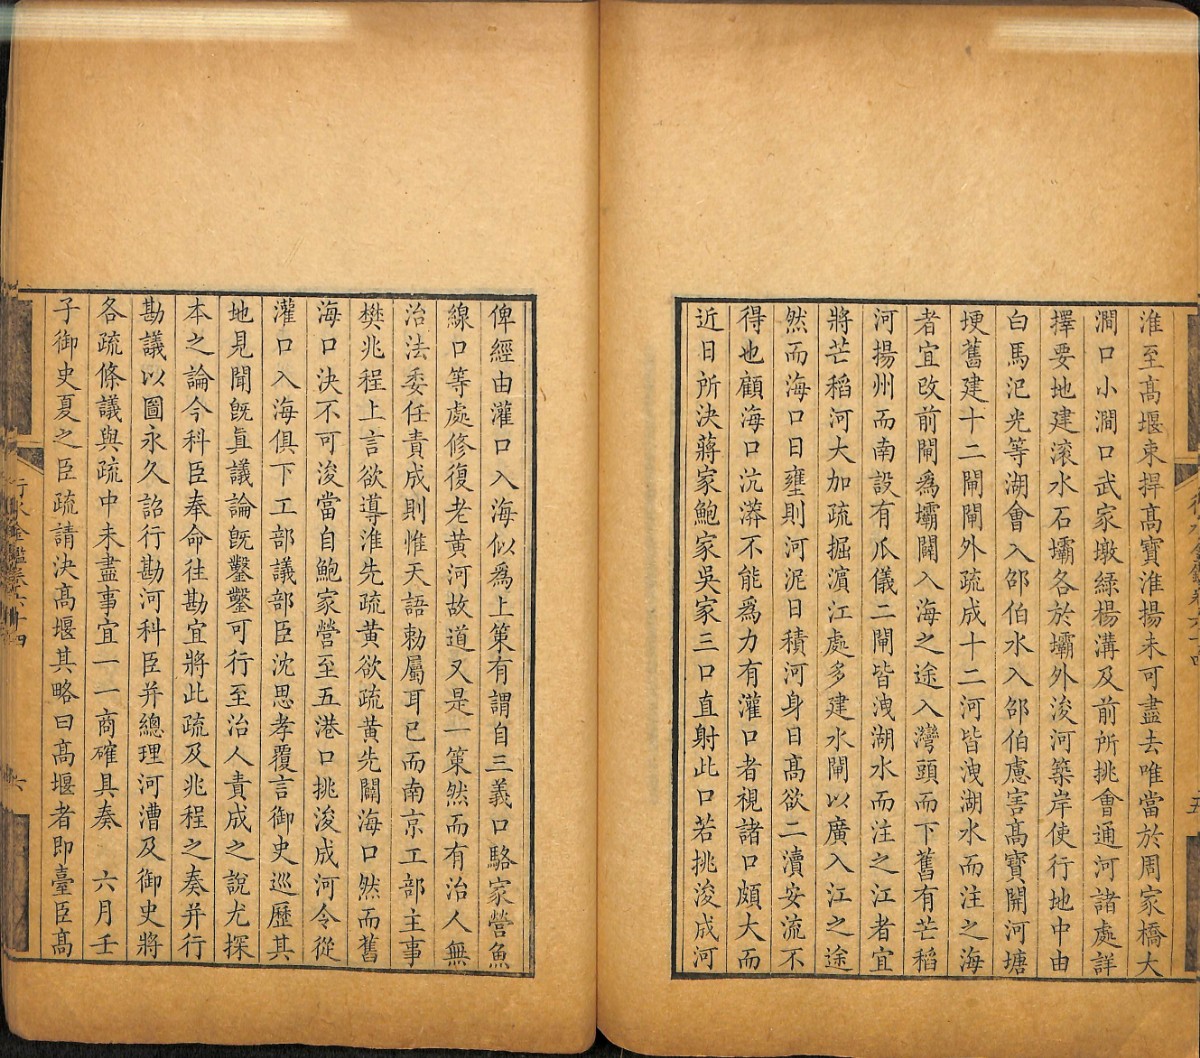 淮至髙堰東捍髙寶淮揚未可盡去唯當於周家橋大
澗口小澗口武家墩綠楊溝及前所挑會通河諸處詳
擇要地建滚水石壩各於壩外浚河築岸使行地中由
白馬氾光等湖會入邵伯水入邵伯慮害髙寶開河塘
埂舊建十二閘閘外疏成十二河皆洩湖水而注之海
者宜改前閘爲壩闢入海之途入灣頭而下舊有芒稻
河揚州而南設有瓜儀二閘皆洩湖水而注之江者宜
將芒稻河大加疏掘濵江處多建水閘以廣入江之途
然而海口日壅則河泥日積河身日髙欲二瀆安流不
得也顧海口沆漭不能爲力有灌口者視諸口頗大而
近日所決蔣家鮑家吳家三口直射此口若挑浚成河
俾經由灌口入海似爲上策有謂自三義口駱家營魚
線口等處修復老黄河故道又是一策然而有治人無
治法委任責成則惟天語勅屬耳已而南京工部主事
樊兆程上言欲導淮先疏黄欲疏黄先闢海口然而舊
海口決不可浚當自鮑家營至五港口挑浚成河令從
灌口入海俱下工部議部臣沈思孝覆言御史巡歷其
地見聞旣真議論旣鑿鑿可行至治人責成之說尤探
本之論今科臣奉命往勘宜將此疏及兆程之奏并行
勘議以圖永久詔行勘河科臣并總理河漕及御史將
各疏條議與疏中未盡事宜一一商確具奏　六月壬
子御史夏之臣疏請決髙堰其略曰髙堰者即臺臣髙
行水金鑑卷六十四